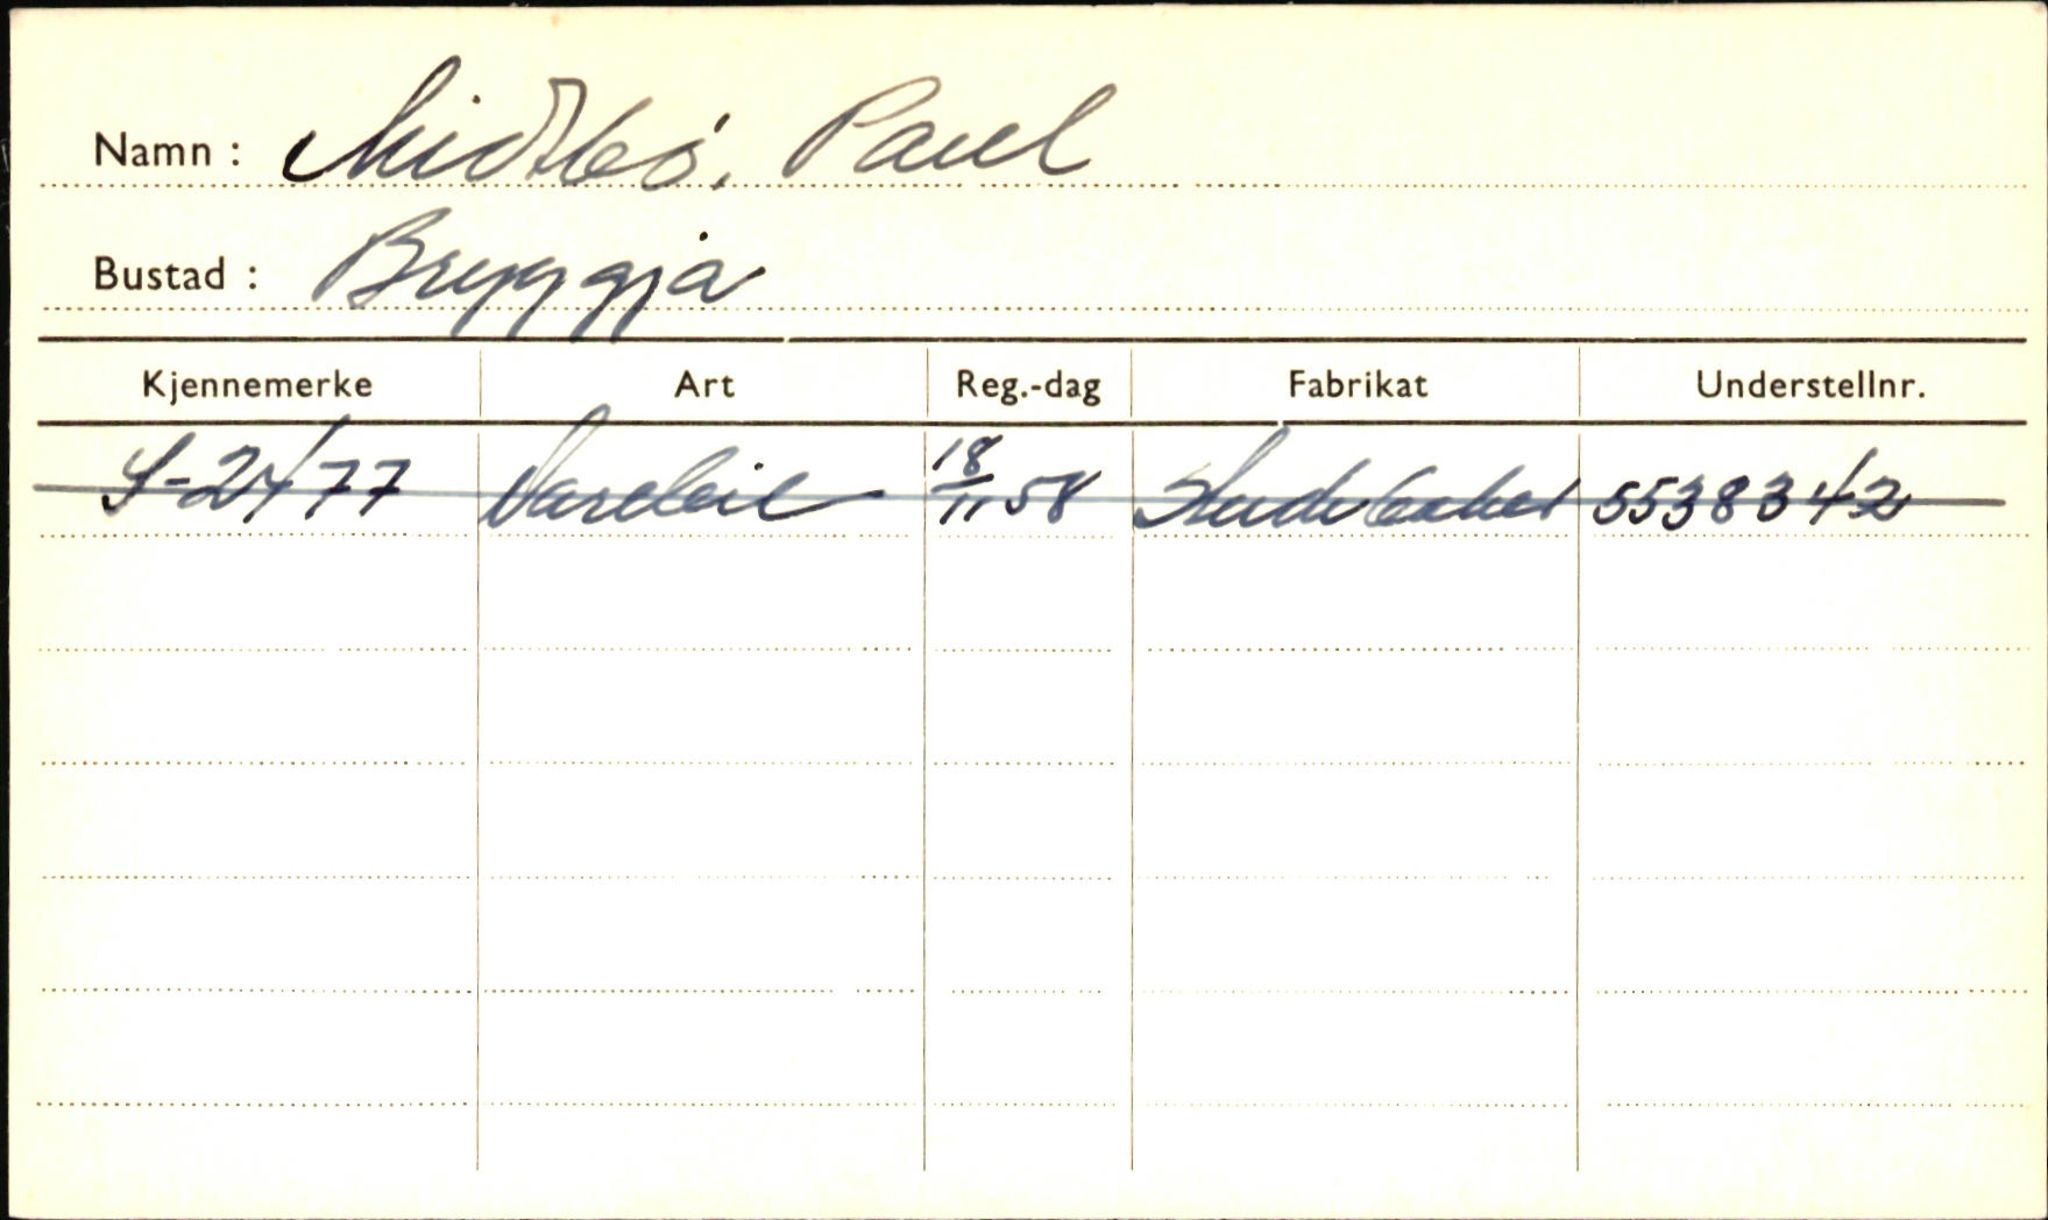 Namn : Midtbø, Paul
Bustad : Bryggja
Kjennemerke Art Reg.-dag Fabrikat Understellnr.
S-2477 Varebil 18/11 58 Studebaker 5538342